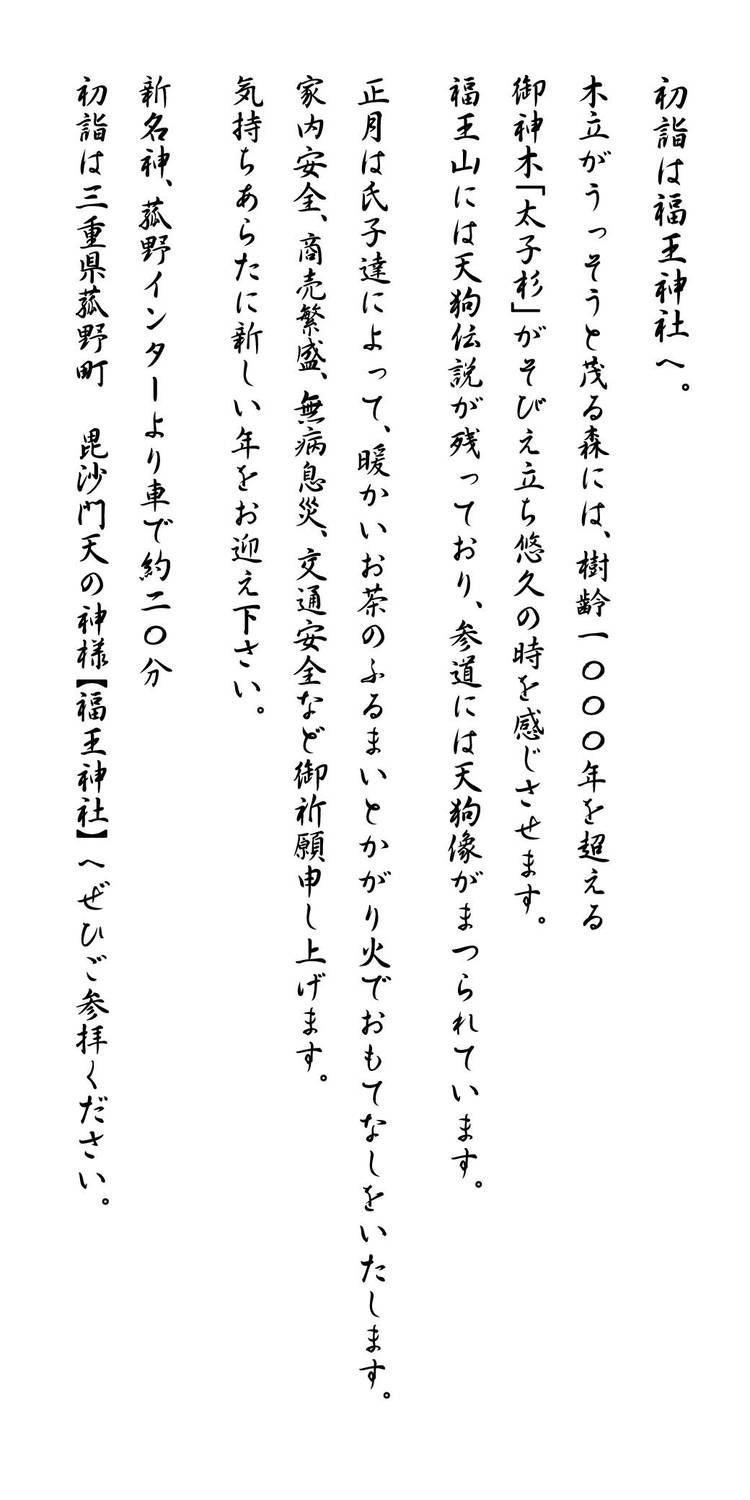 初詣は福王神社へ。
木立がうっそうと茂る森には、樹齢一〇〇〇年を超える
御神木「太子杉」がそびえ立ち悠久の時を感じさせます。
福王山には天狗伝説が残っており、参道には天狗像がまつられています。
正月は氏子達によって、暖かいお茶のふるまいとかがり火でおもてなしをいたします。
家内安全、商売繁盛、無病息災、交通安全など御祈願申し上げます。
気持ちあらたに新しい年をお迎え下さい。
新名神、菰野インターより車で約二〇分
初詣は三重県菰野町　毘沙門天の神様【福王神社】へぜひご参拝ください。